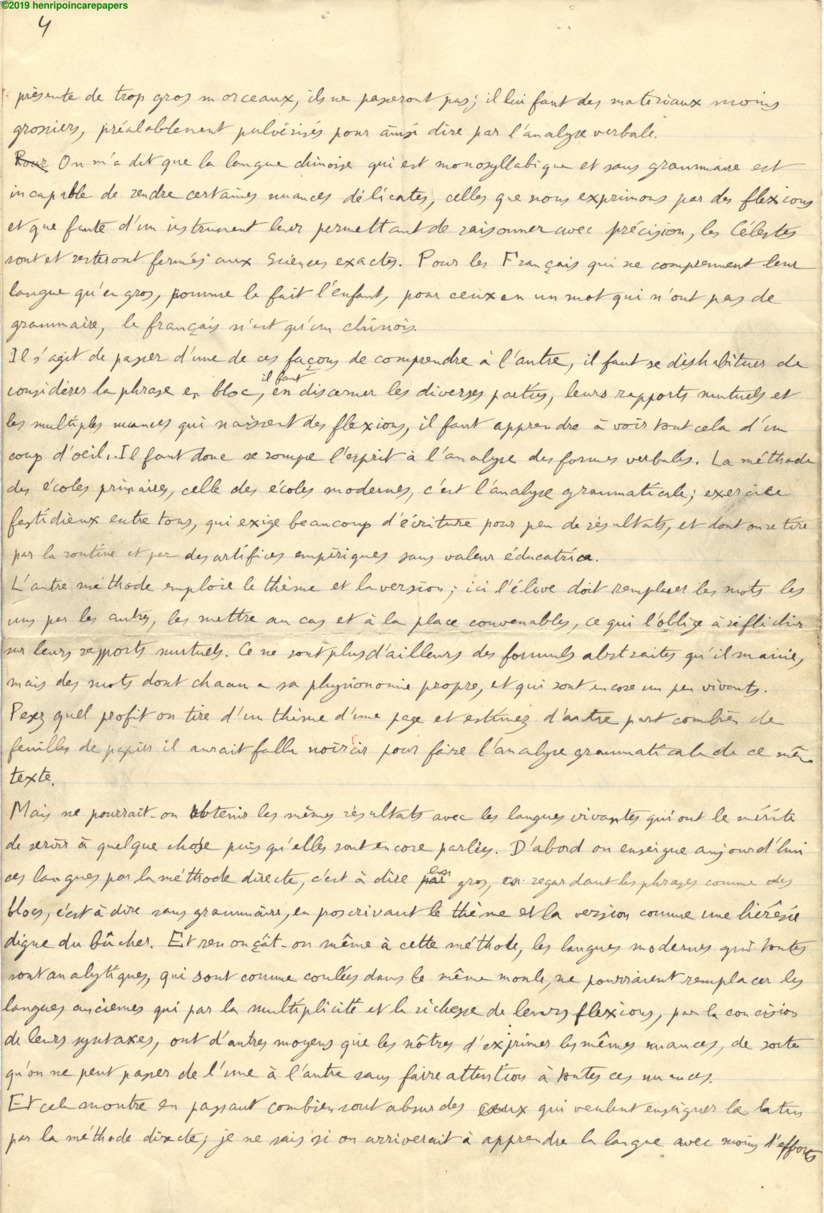 ©2019 henripoincarepapers
4
présente de trop gros morceaux, ils ne passeront pas; il lui faut des matériaux moins
grossiers, préalablement pulvérisés pour ainsi dire par l'analyse verbale.
Pour On m'a dit que la langue chinoise qui est monosyllabique et sans grammaire est
incapable de rendre certaines nuances délicates, celles que nous exprimons par des flexions
et que faute d'un instrument leur permettant de raisonner avec précision, les Célestes
sont et resteront fermés aux Sciences exactes. Pour les Français qui ne comprennent leur
langue qu'en gros, comme le fait l'enfant, pour ceux en un mot qui n'ont pas de
grammaire, le français n'est qu'un chinois.
Il s'agit de passer d'une de ces façons de comprendre à l'autre, il faut se déshabituer de
considérer la phrase en bloc, il faut en discerner les diverses parties, leurs rapports mutuels et
les multiples nuances qui naissent des flexions, il faut apprendre à voir tout cela d'un
coup d'oeil. Il faut donc se rompre l'esprit à l'analyse des formes verbales. La méthode
des écoles primaires, celle des écoles modernes, c'est l'analyse grammaticale; exercice
fastidieux entre tous, qui exige beaucoup d'écriture pour peu de résultats, et dont on se tire
par la routine et par des artifices empiriques sans valeur éducatrice.
L'autre méthode emploie le thème et la version; ici l'élève doit remplacer les mots les
uns par les autres, les mettre au cas et à la place convenables, ce qui l'oblige à réfléchir
sur leurs rapports mutuels. Ce ne sont plus d'ailleurs des formules abstraites qu'il manie,
mais des mots dont chacun a sa physionomie propre, et qui sont encore un peu vivants.
Pesez quel profit on tire d'un thème d'une page et estimez d'autre part combien de
feuilles de papier il aurait fallu noircir pour faire l'analyse grammaticale de ce même
texte.
Mais ne pourrait-on obtenir les mêmes résultats avec les langues vivantes qui ont le mérite
de servir à quelque chose puisqu'elles sont encore parlées. D'abord on enseigne aujourd'hui
ces langues par la méthode directe, c'est à dire par en gros, en regardant les phrases comme des
blocs, c'est à dire sans grammaire, en proscrivant le thème et la version comme une hérésie
digne du bûcher. Et renonçât-on même à cette méthode, les langues modernes qui toutes
sont analytiques, qui sont comme coulées dans le même moule, ne pourraient remplacer les
langues anciennes qui par la multiplicité et la richesse de leurs flexions, par la concision
de leurs syntaxes, ont d'autres moyens que les nôtres d'exprimer les mêmes nuances, de sorte
qu'on ne peut passer de l'une à l'autre sans faire attention à toutes ces nuances.
Et cela montre en passant combien sont absurdes ceux qui veulent enseigner le latin
par la méthode directe; je ne sais si on arriverait à apprendre la langue avec moins d'efforts